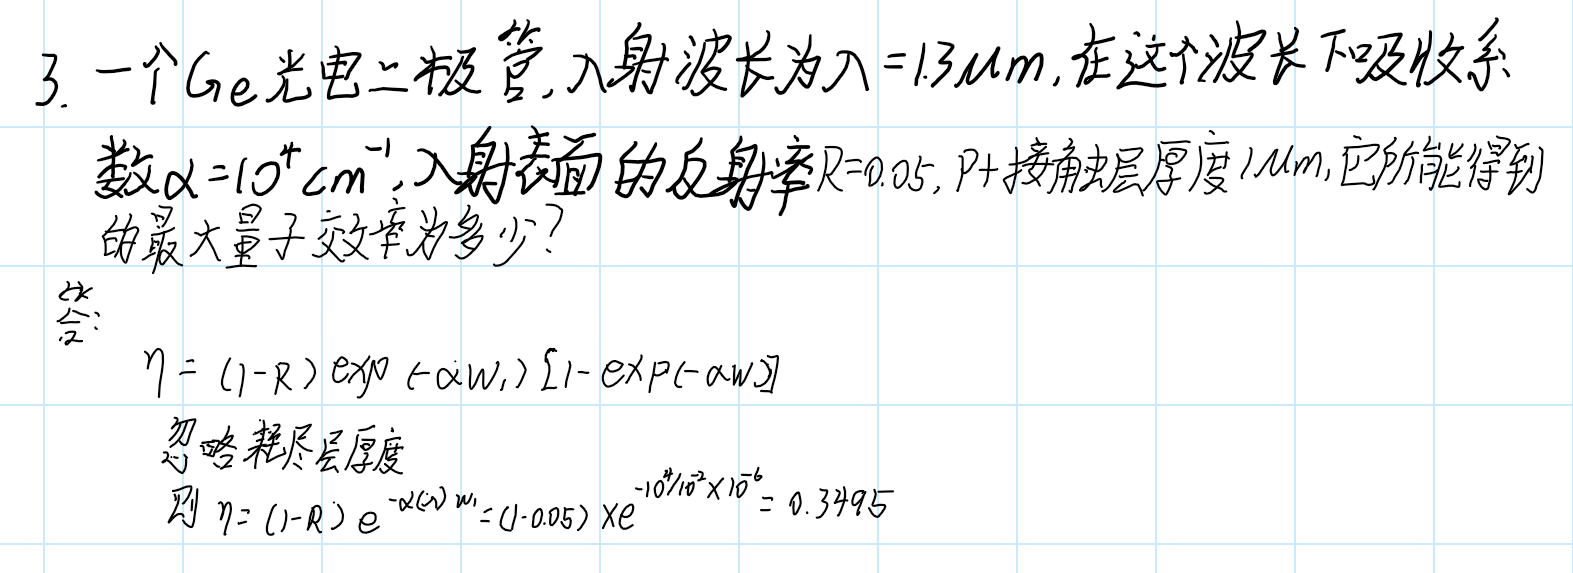 3. 一个Ge光电二极管,入射波长为λ=1.3μm,在这个波长下吸收系
数α=10⁴cm⁻¹,入射表面的反射率R=0.05,P+接触层厚度1μm,它所能得到
的最大量子效率为多少?
答:
η=(1-R)exp(-αw₁)[1-exp(-αw)]
忽略耗尽层厚度
则 η=(1-R)e^{-α(λ)w₁}=(1-0.05)×e^{-10⁴/10⁻²×10⁻⁶}=0.3495